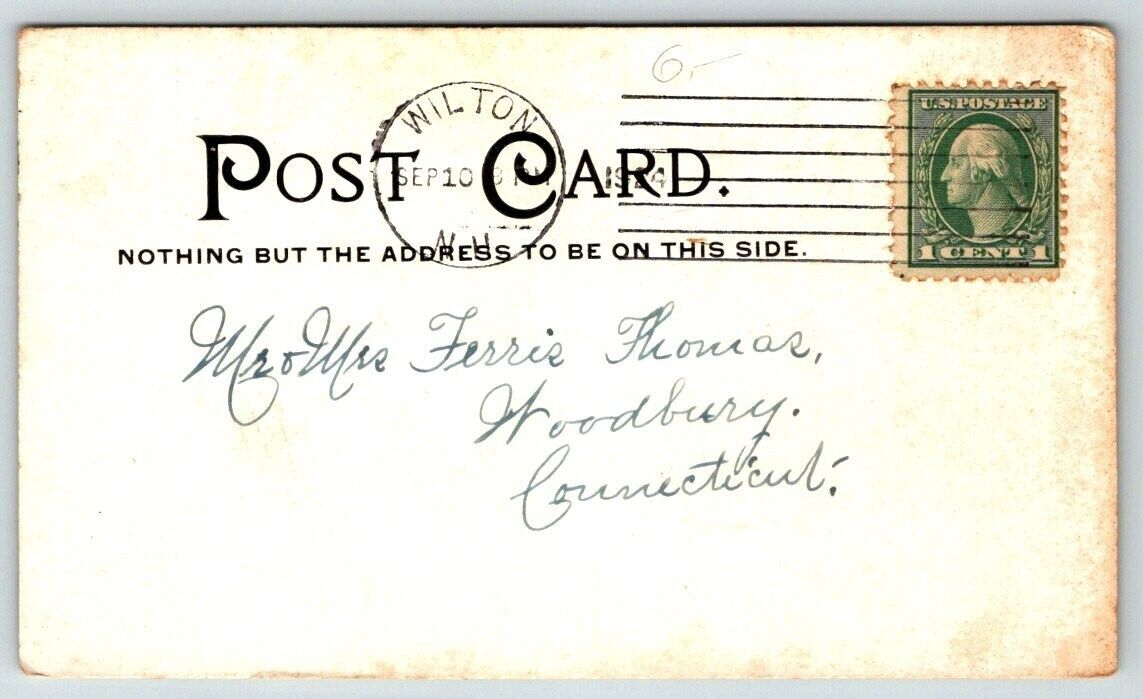 6.-
WILTON
SEP 10 PM 1924
N.H.
U.S. POSTAGE
1 CENT 1
POST CARD.
NOTHING BUT THE ADDRESS TO BE ON THIS SIDE.
Mr & Mrs Ferris Thomas,
Woodbury.
Connecticut.